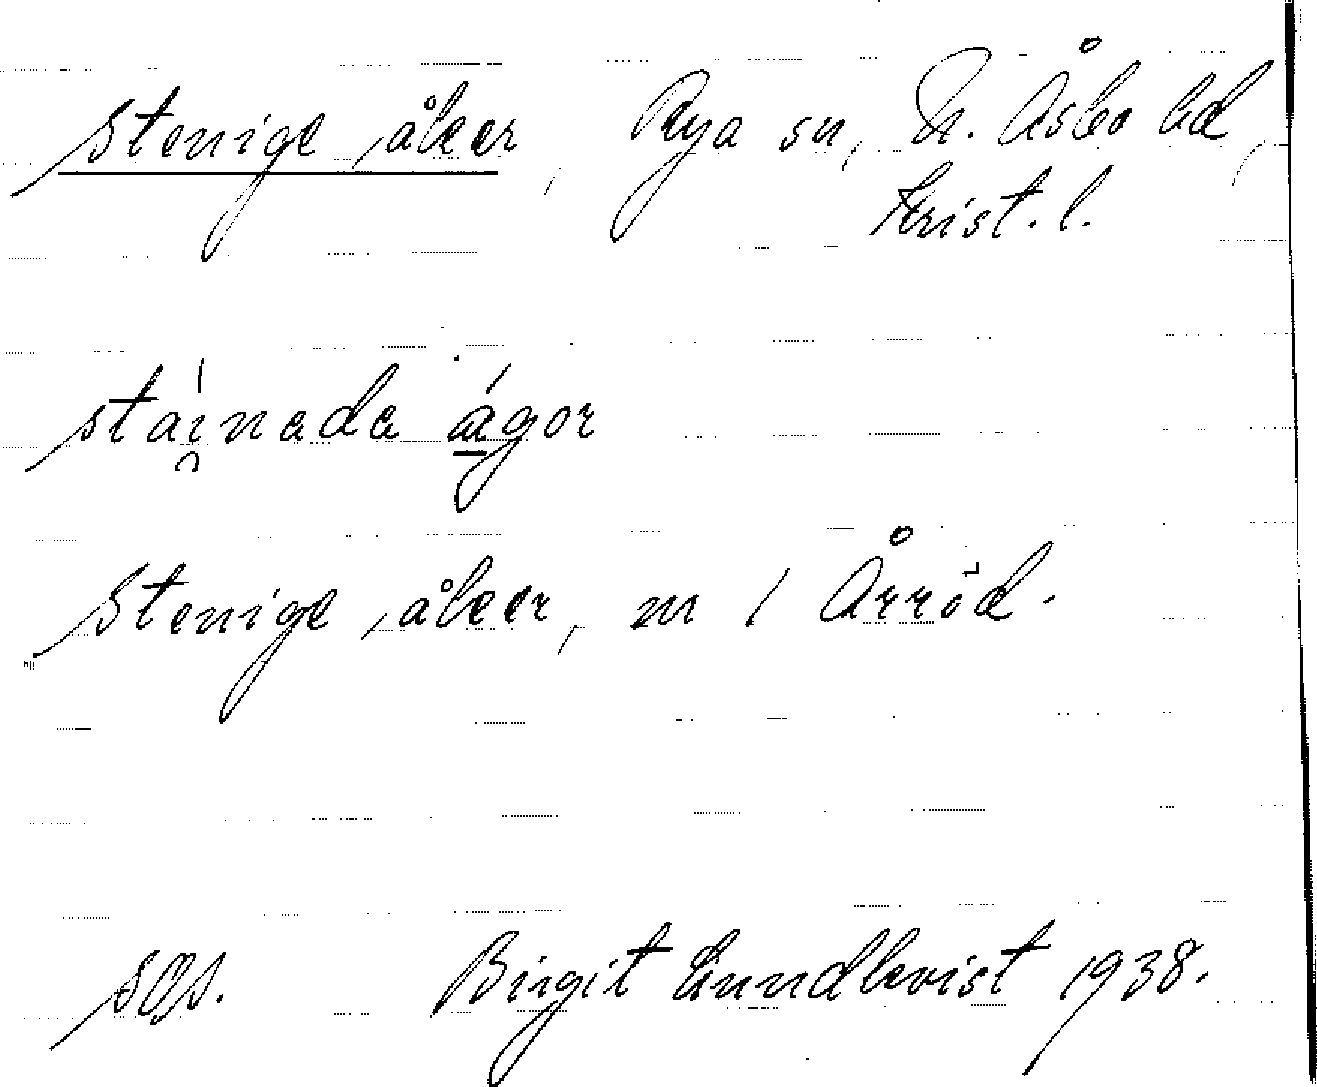 stenige åker, Rya sn, N. Åsbo hd,
Krist. l.
stái̯nada ágor
Stenige åker, m / Årröd.
sgs. Birgit Lundkvist 1938.